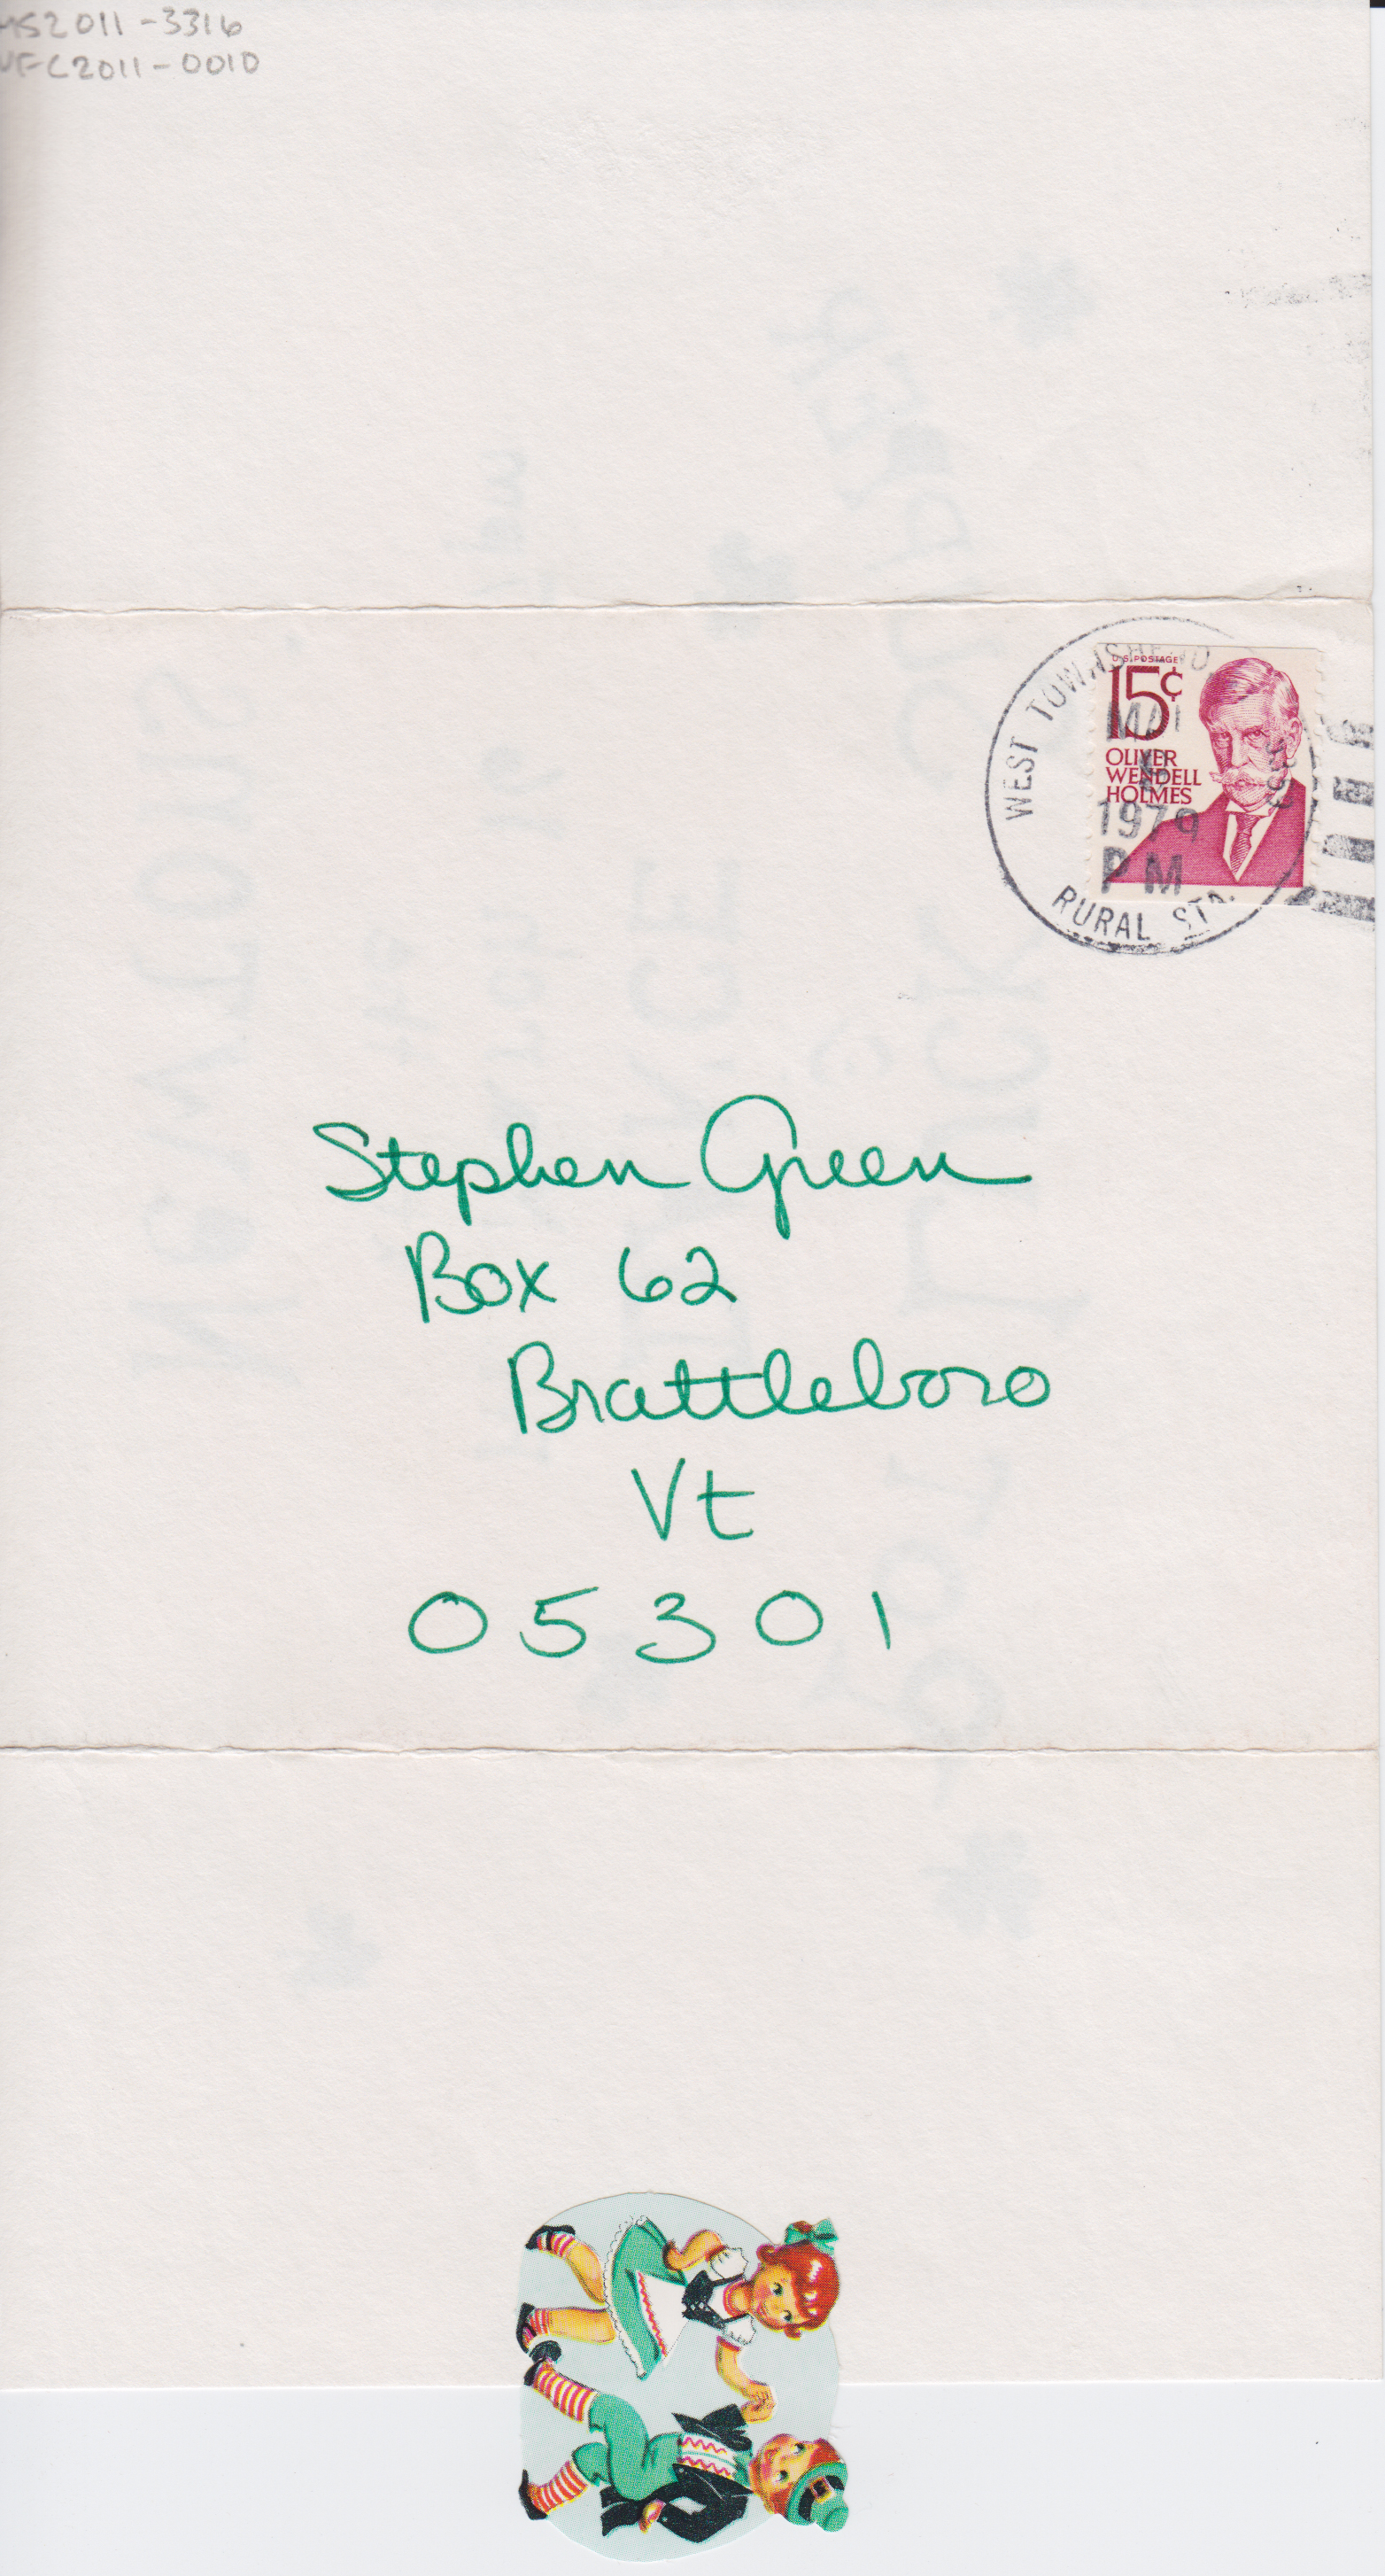 MS2011-3316
VFC2011-0010
U.S. POSTAGE
15¢
OLIVER
WENDELL
HOLMES
WEST TOWNSHEND
1979
PM
RURAL STA.
Stephen Green
Box 62
Brattleboro
Vt
05301